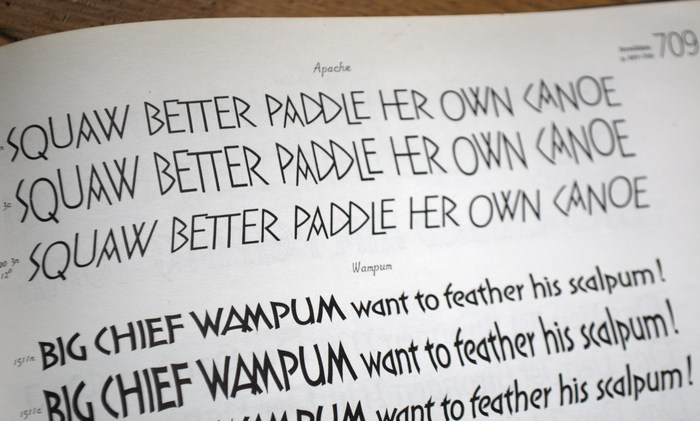 709
Apache
SQUAW BETTER PADDLE HER OWN CANOE
SQUAW BETTER PADDLE HER OWN CANOE
SQUAW BETTER PADDLE HER OWN CANOE
Wampum
BIG CHIEF WAMPUM want to feather his scalpum!
BIG CHIEF WAMPUM want to feather his scalpum!
WAMPUM want to feather his scalpum!